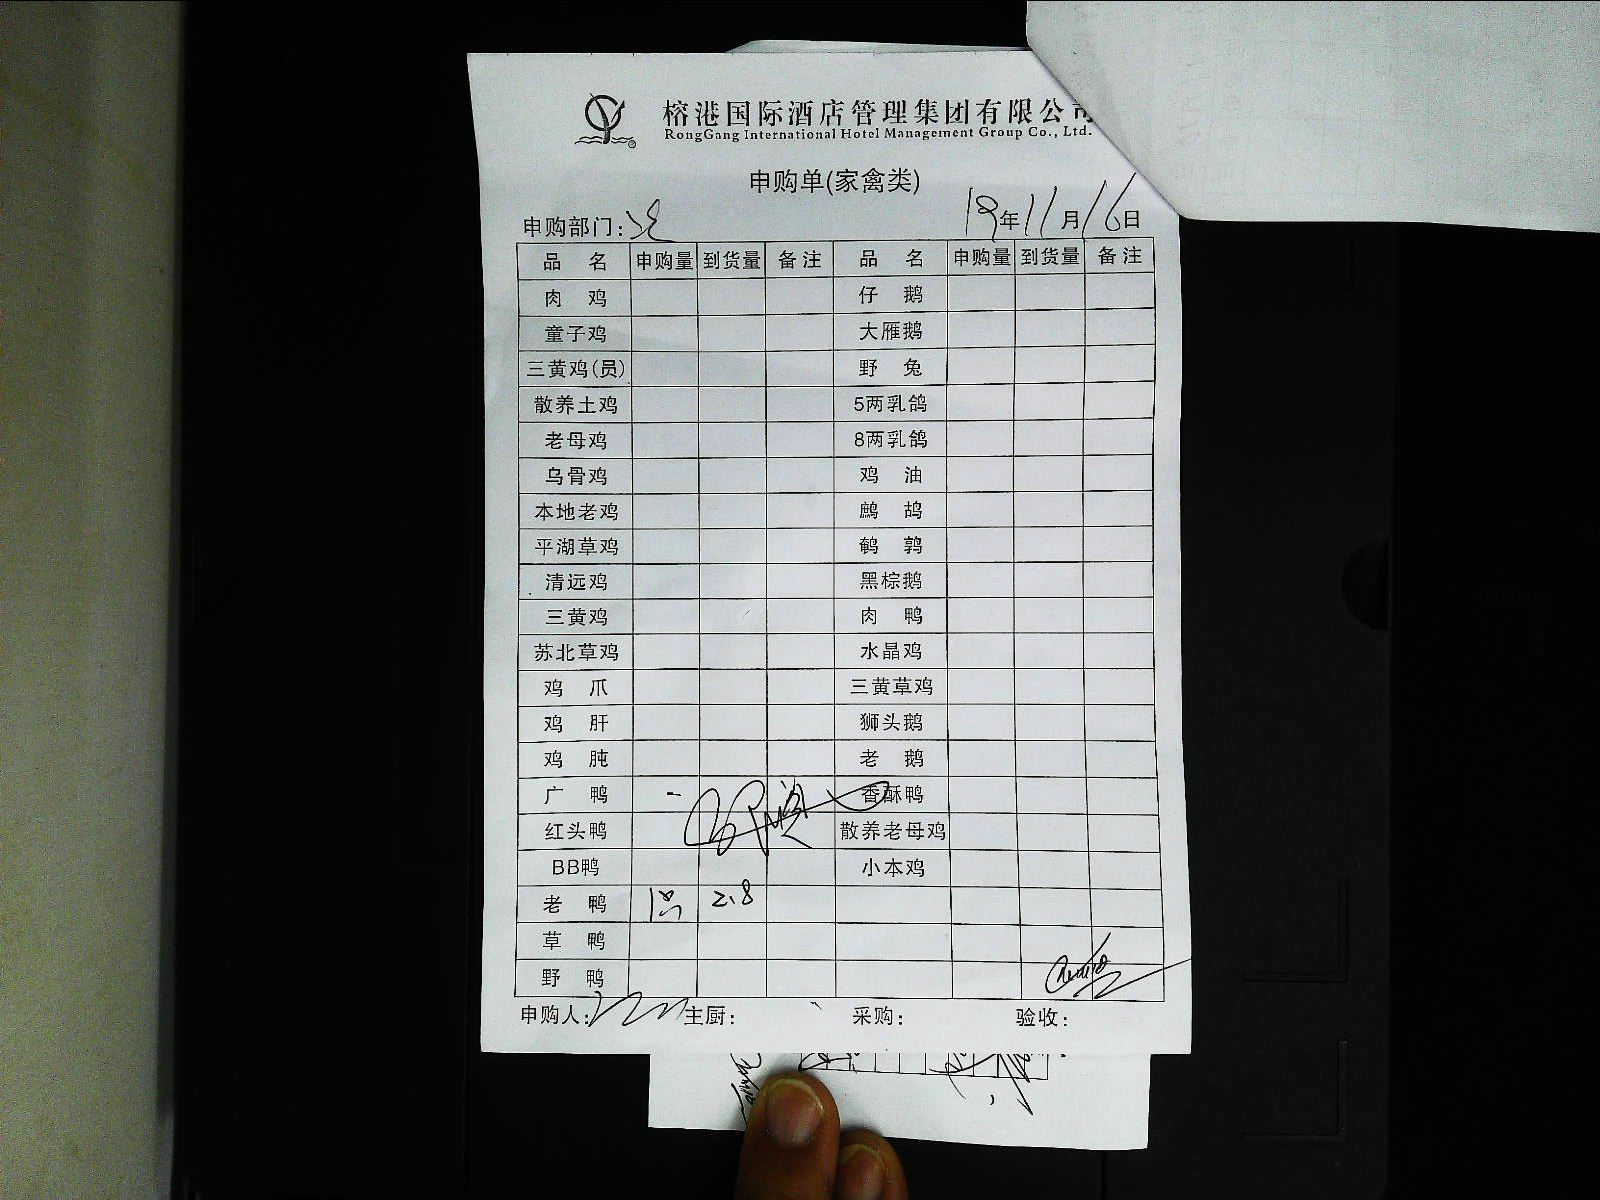 榕港国际酒店管理集团有限公司
RongGang International Hotel Management Group Co., Ltd.
申购单(家禽类)
申购部门: 19年11月16日
品名 申购量 到货量 备注 品名 申购量 到货量 备注
肉鸡 仔鹅
童子鸡 大雁鹅
三黄鸡(员) 野兔
散养土鸡 5两乳鸽
老母鸡 8两乳鸽
乌骨鸡 鸡油
本地老鸡 鹧鸪
平湖草鸡 鹌鹑
清远鸡 黑棕鹅
三黄鸡 肉鸭
苏北草鸡 水晶鸡
鸡爪 三黄草鸡
鸡肝 狮头鹅
鸡肫 老鹅
广鸭 香酥鸭
红头鸭 散养老母鸡
BB鸭 小本鸡
老鸭 1只 2.8
草鸭
野鸭
申购人: 主厨: 采购: 验收: